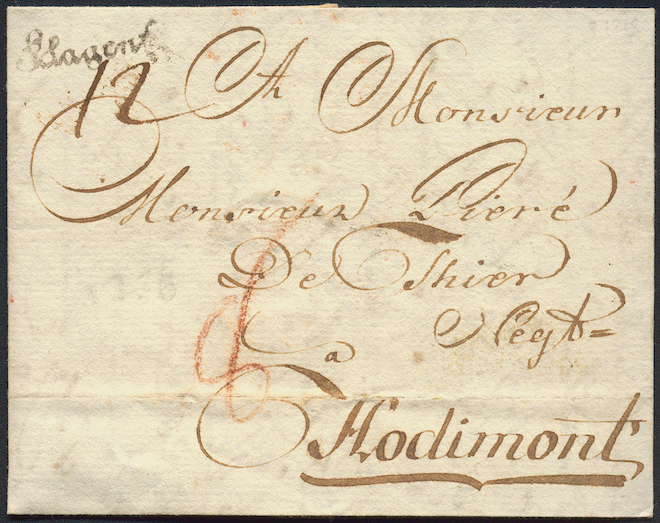 12
A Monsieur
Monsieur Pieré
De Thier
Negt=
a
Hodimont